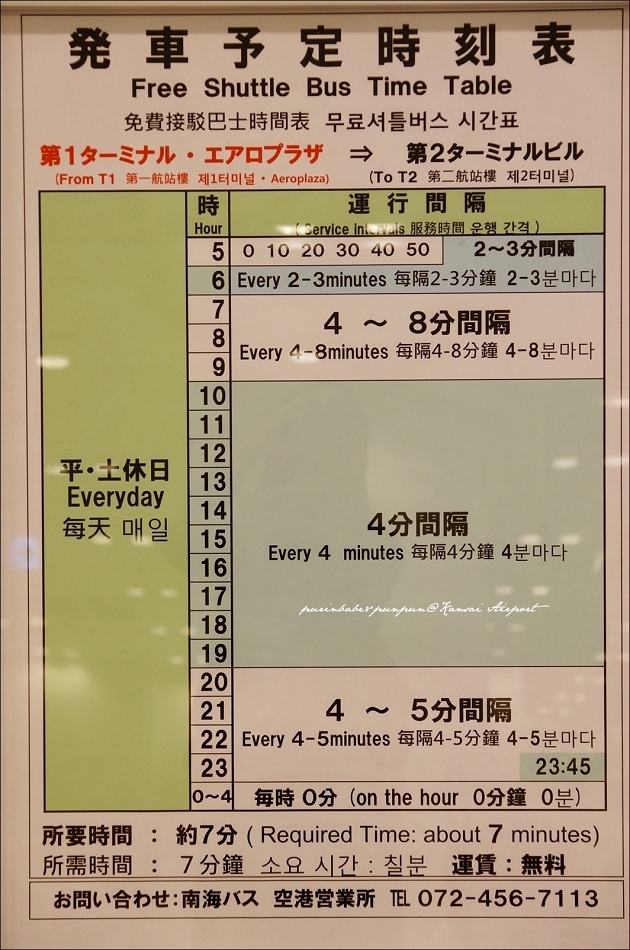 発車予定時刻表
Free Shuttle Bus Time Table
免費接駁巴士時間表 무료셔틀버스 시간표
第1ターミナル・エアロプラザ ⇒ 第2ターミナルビル
(From T1 第一航站樓 제1터미널・Aeroplaza) (To T2 第二航站樓 제2터미널)
時 運行間隔
Hour (Service intervals 服務時間 운행 간격)
5 0 10 20 30 40 50 2～3分間隔
6 Every 2-3minutes 每隔2-3分鐘 2-3분마다
7
8 4 ～ 8分間隔
Every 4-8minutes 每隔4-8分鐘 4-8분마다
9
10
11
12
平・土休日
13
Everyday
14
每天 매일
4分間隔
15 Every 4 minutes 每隔4分鐘 4분마다
16
17
purinbabe&punpun@Kansai Airport
18
19
20
21 4 ～ 5分間隔
22 Every 4-5minutes 每隔4-5分鐘 4-5분마다
23 23:45
0～4 毎時 0分 (on the hour 0分鐘 0분)
所要時間 : 約7分 ( Required Time: about 7 minutes)
所需時間 : 7分鐘 소요 시간 : 칠분 運賃 : 無料
お問い合わせ:南海バス 空港営業所 TEL 072-456-7113